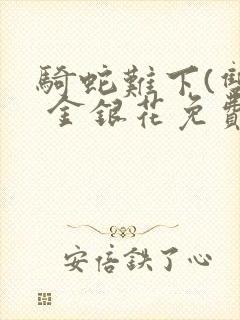 騎蛇難下(雙
金銀花免費
安倍鉄了心